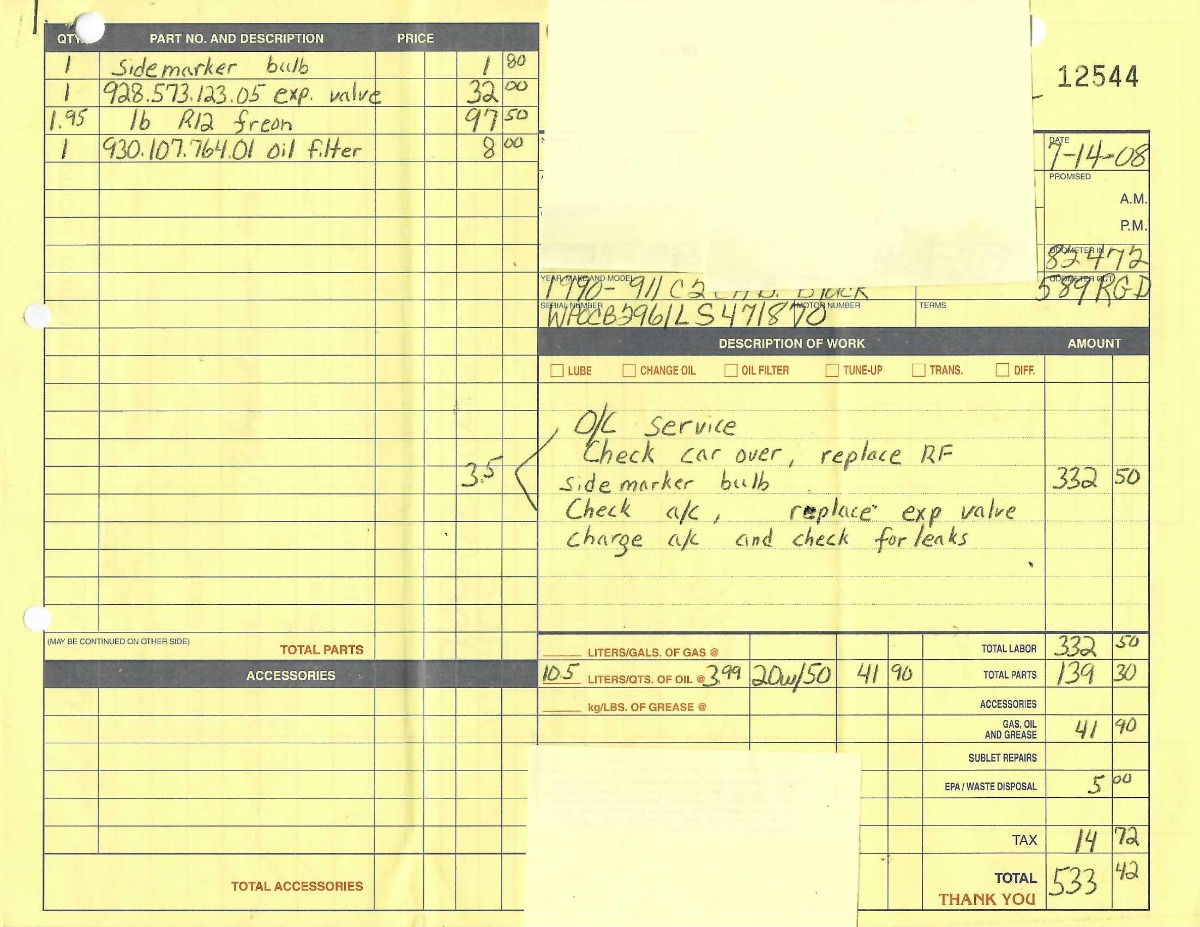 QTY. PART NO. AND DESCRIPTION PRICE
1 Side marker bulb 1 80
1 928.573.123.05 exp. valve 32 00
1.95 lb R12 freon 97 50
1 930.107.764.01 oil filter 8 00
12544
DATE
7-14-08
PROMISED
A.M.
P.M.
ODOMETER IN
82472
YEAR, MAKE AND MODEL
1990 - 911 C2 Black
ODOMETER OUT
589RGD
SERIAL NUMBER MOTOR NUMBER TERMS
WPOCB2961LS471870
DESCRIPTION OF WORK AMOUNT
LUBE CHANGE OIL OIL FILTER TUNE-UP TRANS. DIFF.
O/C service
Check car over, replace RF
3.5 side marker bulb 332 50
Check a/c, replace exp valve
Charge a/c and check for leaks
(MAY BE CONTINUED ON OTHER SIDE) TOTAL PARTS
ACCESSORIES
TOTAL ACCESSORIES
LITERS/GALS. OF GAS @
10.5 LITERS/QTS. OF OIL @ 3.99 20w/50 41 90
kg/LBS. OF GREASE @
TOTAL LABOR 332 50
TOTAL PARTS 139 30
ACCESSORIES
GAS, OIL
AND GREASE 41 90
SUBLET REPAIRS
EPA / WASTE DISPOSAL 5 00
TAX 14 72
TOTAL 533 42
THANK YOU